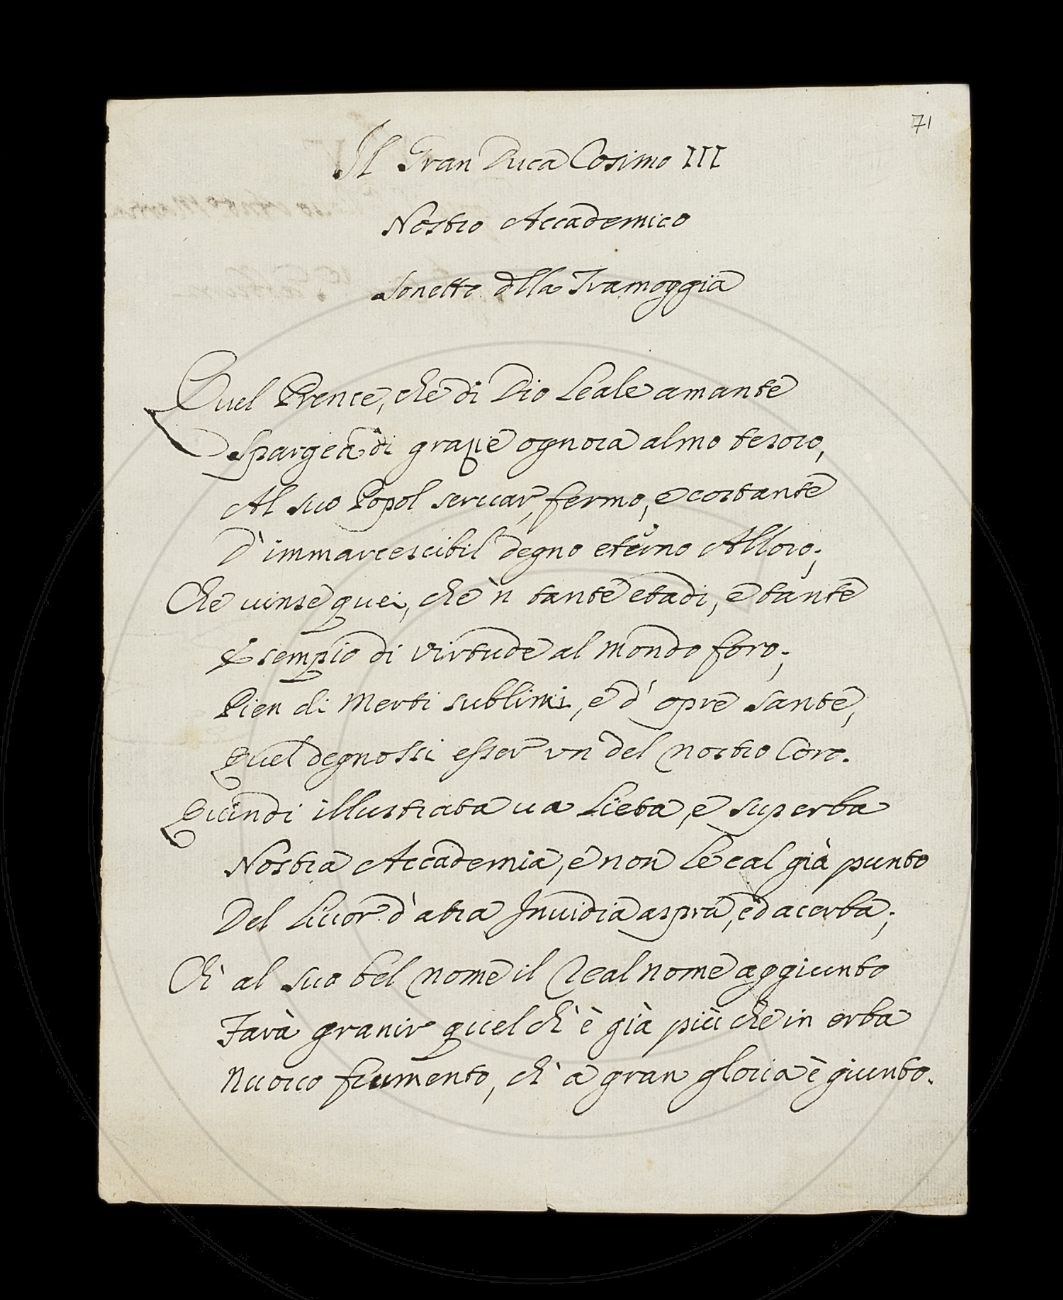 71
Il Gran Duca Cosimo III
Nostro Accademico
Sonetto dlla Tramoggia
Quel Prence, che di Dio leale amante
Spargea di grazie ognora almo tesoro,
Al suo Popol servar, fermo, e costante
D'immarcescibil degno eterno Alloro;
Che vinse quei, che 'n tante etadi, e tante
Esempio di virtude al mondo foro;
Pien di Merti sublimi, e d'opre sante,
Quel degnossi esser vn del nostro Coro.
Quindi illustrata va lieta, e superba
Nostra Accademia, e non le cal già punto
Del livor d'atra Invidia aspra, ed acerba;
Ch' al suo bel nome il Real nome aggiunto
Farà granir quel ch' è già più che in erba
Nuovo frumento, ch' a gran gloria è giunto.